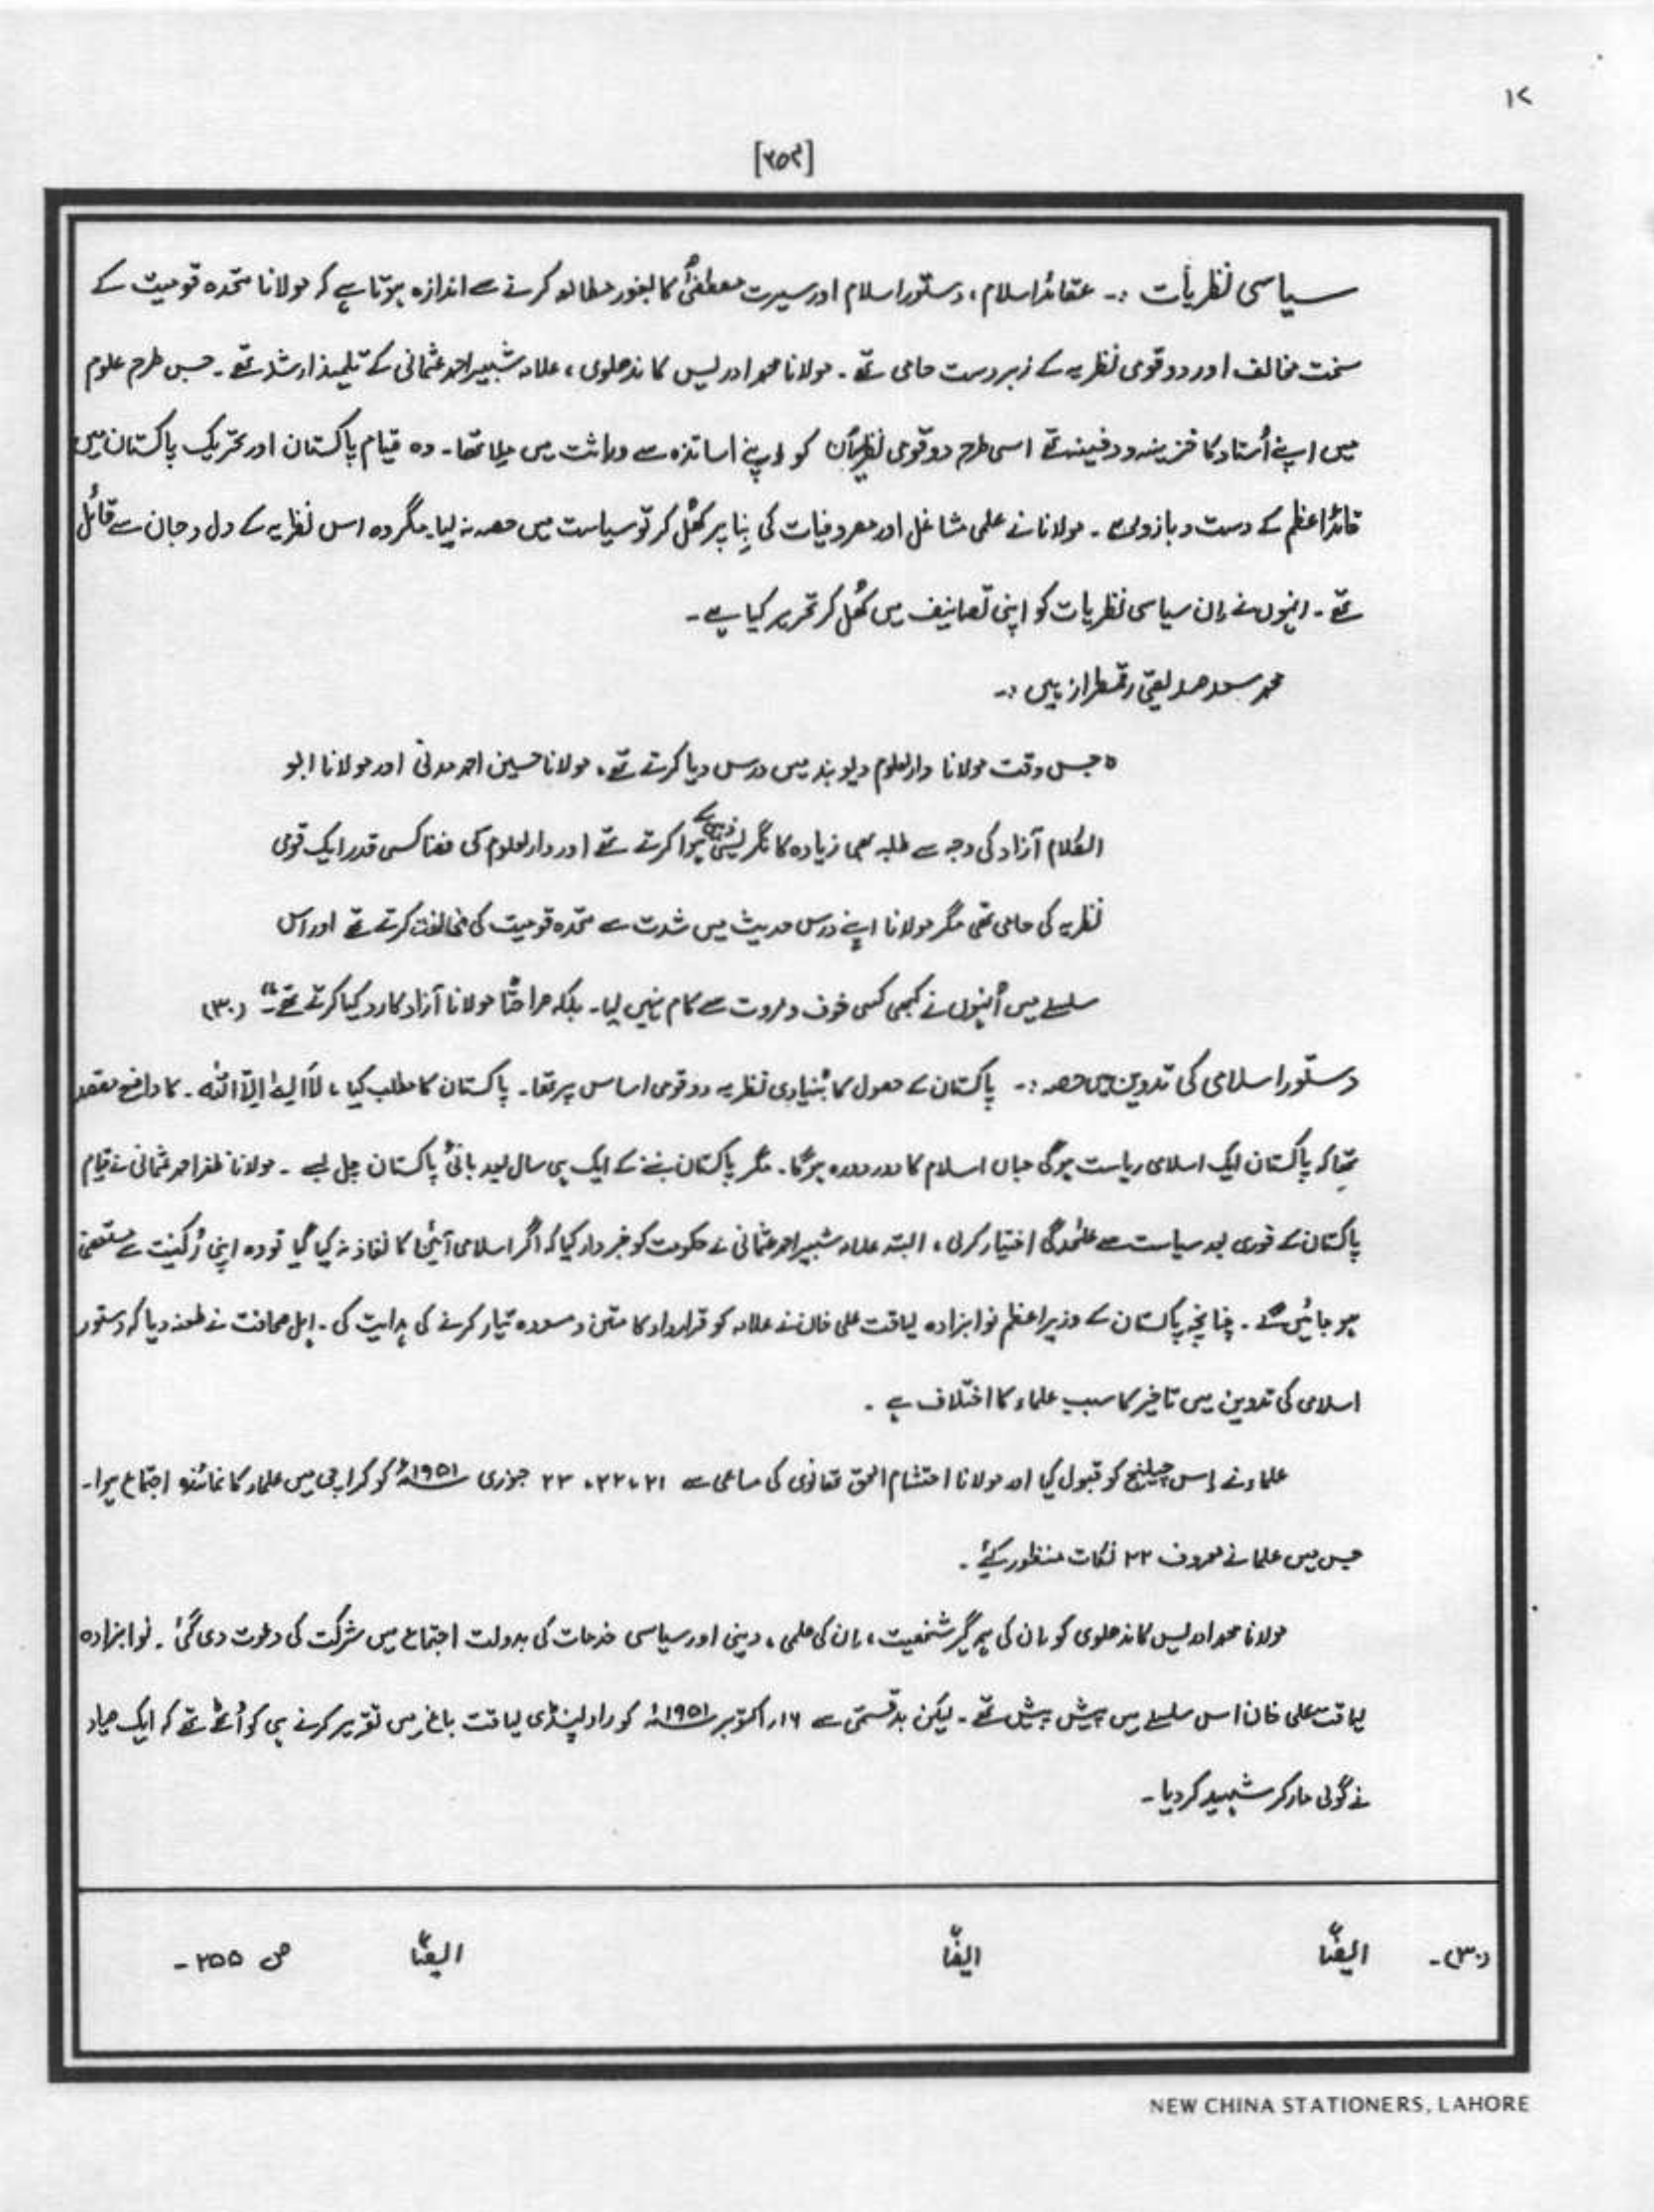 ۱۷
[۲۵۴]
سیاسی نظریات :۔ عقائد اسلام، دستور اسلام اور سیرت مصطفیٰؐ کا بغور مطالعہ کرنے سے اندازہ ہوتا ہے کہ مولانا متحدہ قومیت کے
سخت مخالف اور دو قومی نظریہ کے زبردست حامی تھے۔ مولانا محمد ادریس کاندھلوی، علامہ شبیر احمد عثمانی کے تلمیذ ارشد تھے۔ جس طرح علوم
میں اپنے اُستاد کا خزینہ و دفینہ تھے اسی طرح دو قومی نظریہ اُن کو اپنے اساتذہ سے وراثت میں ملا تھا۔ وہ قیام پاکستان اور تحریک پاکستان میں
قائداعظم کے دست و بازو بنے۔ مولانا نے علمی مشاغل اور مصروفیات کی بِنا پر کھُل کر تو سیاست میں حصہ نہ لیا۔ مگر وہ اس نظریہ کے دل و جان سے قائل
تھے۔ انہوں نے اِن سیاسی نظریات کو اپنی تصانیف میں کھُل کر تحریر کیا ہے۔
محمد سعد صدیقی رقمطراز ہیں :۔
"جس وقت مولانا دارالعلوم دیوبند میں درس دیا کرتے تھے، مولانا حسین احمد مدنی اور مولانا ابو
الکلام آزاد کی وجہ سے طلبہ بھی زیادہ کانگریسی ذہن کے ہوا کرتے تھے اور دارالعلوم کی فضا کسی قدر ایک قومی
نظریہ کی حامی تھی مگر مولانا اپنے درس حدیث میں شدت سے متحدہ قومیت کی مخالفت کرتے تھے اور اس
سلسلے میں اُنہوں نے کبھی کسی خوف و مروت سے کام نہیں لیا۔ بلکہ صراحتًا مولانا آزاد کا رد کیا کرتے تھے۔" (۳۰)
دستور اسلامی کی تدوین میں حصہ :۔ پاکستان کے حصول کا بُنیادی نظریہ دو قومی اساس پر تھا۔ پاکستان کا مطلب کیا، لَآ اِلٰہَ اِلّا اللہ۔ کا واضح مقصد
تھا کہ پاکستان ایک اسلامی ریاست ہو گی جہاں اسلام کا دور دورہ ہو گا۔ مگر پاکستان بننے کے ایک ہی سال بعد بانئ پاکستان چل بسے۔ مولانا ظفر احمد عثمانی نے قیام
پاکستان کے فوری بعد سیاست سے علٰحدگی اختیار کر لی، البتہ علامہ شبیر احمد عثمانی نے حکومت کو خبردار کیا کہ اگر اسلامی آئین کا نفاذ نہ کیا گیا تو وہ اپنی رُکنیت سے مستعفی
ہو جائیں گے۔ چنانچہ پاکستان کے وزیراعظم نوابزادہ لیاقت علی خان نے علامہ کو قرارداد کا متن و مسودہ تیار کرنے کی ہدایت کی۔ اہل صحافت نے طعنہ دیا کہ دستور
اسلامی کی تدوین میں تاخیر کا سبب علماء کا اختلاف ہے۔
علماء نے اِس چیلنج کو قبول کیا اور مولانا احتشام الحق تھانوی کی مساعی سے ۲۱، ۲۲، ۲۳ جنوری ۱۹۵۱ء کو کراچی میں علماء کا نمائندہ اجتماع ہوا۔
جس میں علما نے معروف ۲۲ نکات منظور کیٔے۔
مولانا محمد ادریس کاندھلوی کو اِن کی ہمہ گیر شخصیت، اِن کی علمی، دینی اور سیاسی خدمات کی بدولت اجتماع میں شرکت کی دعوت دی گئی۔ نوابزادہ
لیاقت علی خان اس سلسلے میں پیش پیش تھے۔ لیکن بدقسمتی سے ۱۶؍ اکتوبر ۱۹۵۱ء کو راولپنڈی لیاقت باغ میں تقریر کرنے ہی کو اُٹھے تھے کہ ایک صیاد
نے گولی مار کر شہید کر دیا۔
(۳۰)۔ ایضًا ایضًا ایضًا ص ۲۵۵۔
NEW CHINA STATIONERS, LAHORE